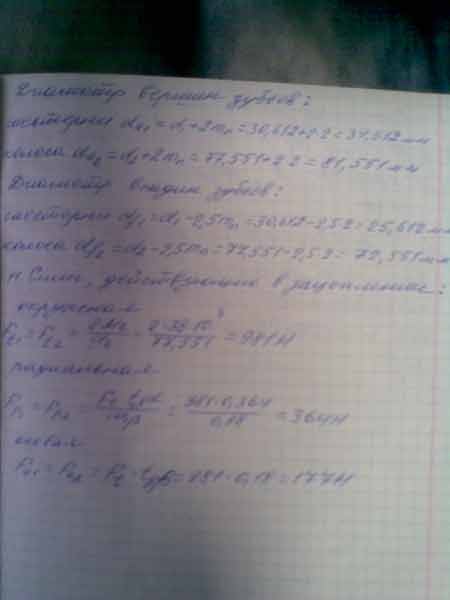 Диаметр вершин зубьев:
шестерни da₁ = d₁+2mₙ = 30,612+2·2 = 34,612 мм
колеса da₂ = d₂+2mₙ = 77,551+2·2 = 81,551 мм
Диаметр впадин зубьев:
шестерни df₁ = d₁-2,5mₙ = 30,612-2,5·2 = 25,612 мм
колеса df₂ = d₂-2,5mₙ = 77,551-2,5·2 = 72,551 мм
Силы, действующие в зацеплении:
окружная
Ft₁ = Ft₂ = = 981 Н
радиальная
Fr₁ = Fr₂ = = 981·0,364 / 0,98 = 364 Н
осевая
Fa₁ = Fa₂ = Ft · tgβ = 981·0,18 = 177 Н